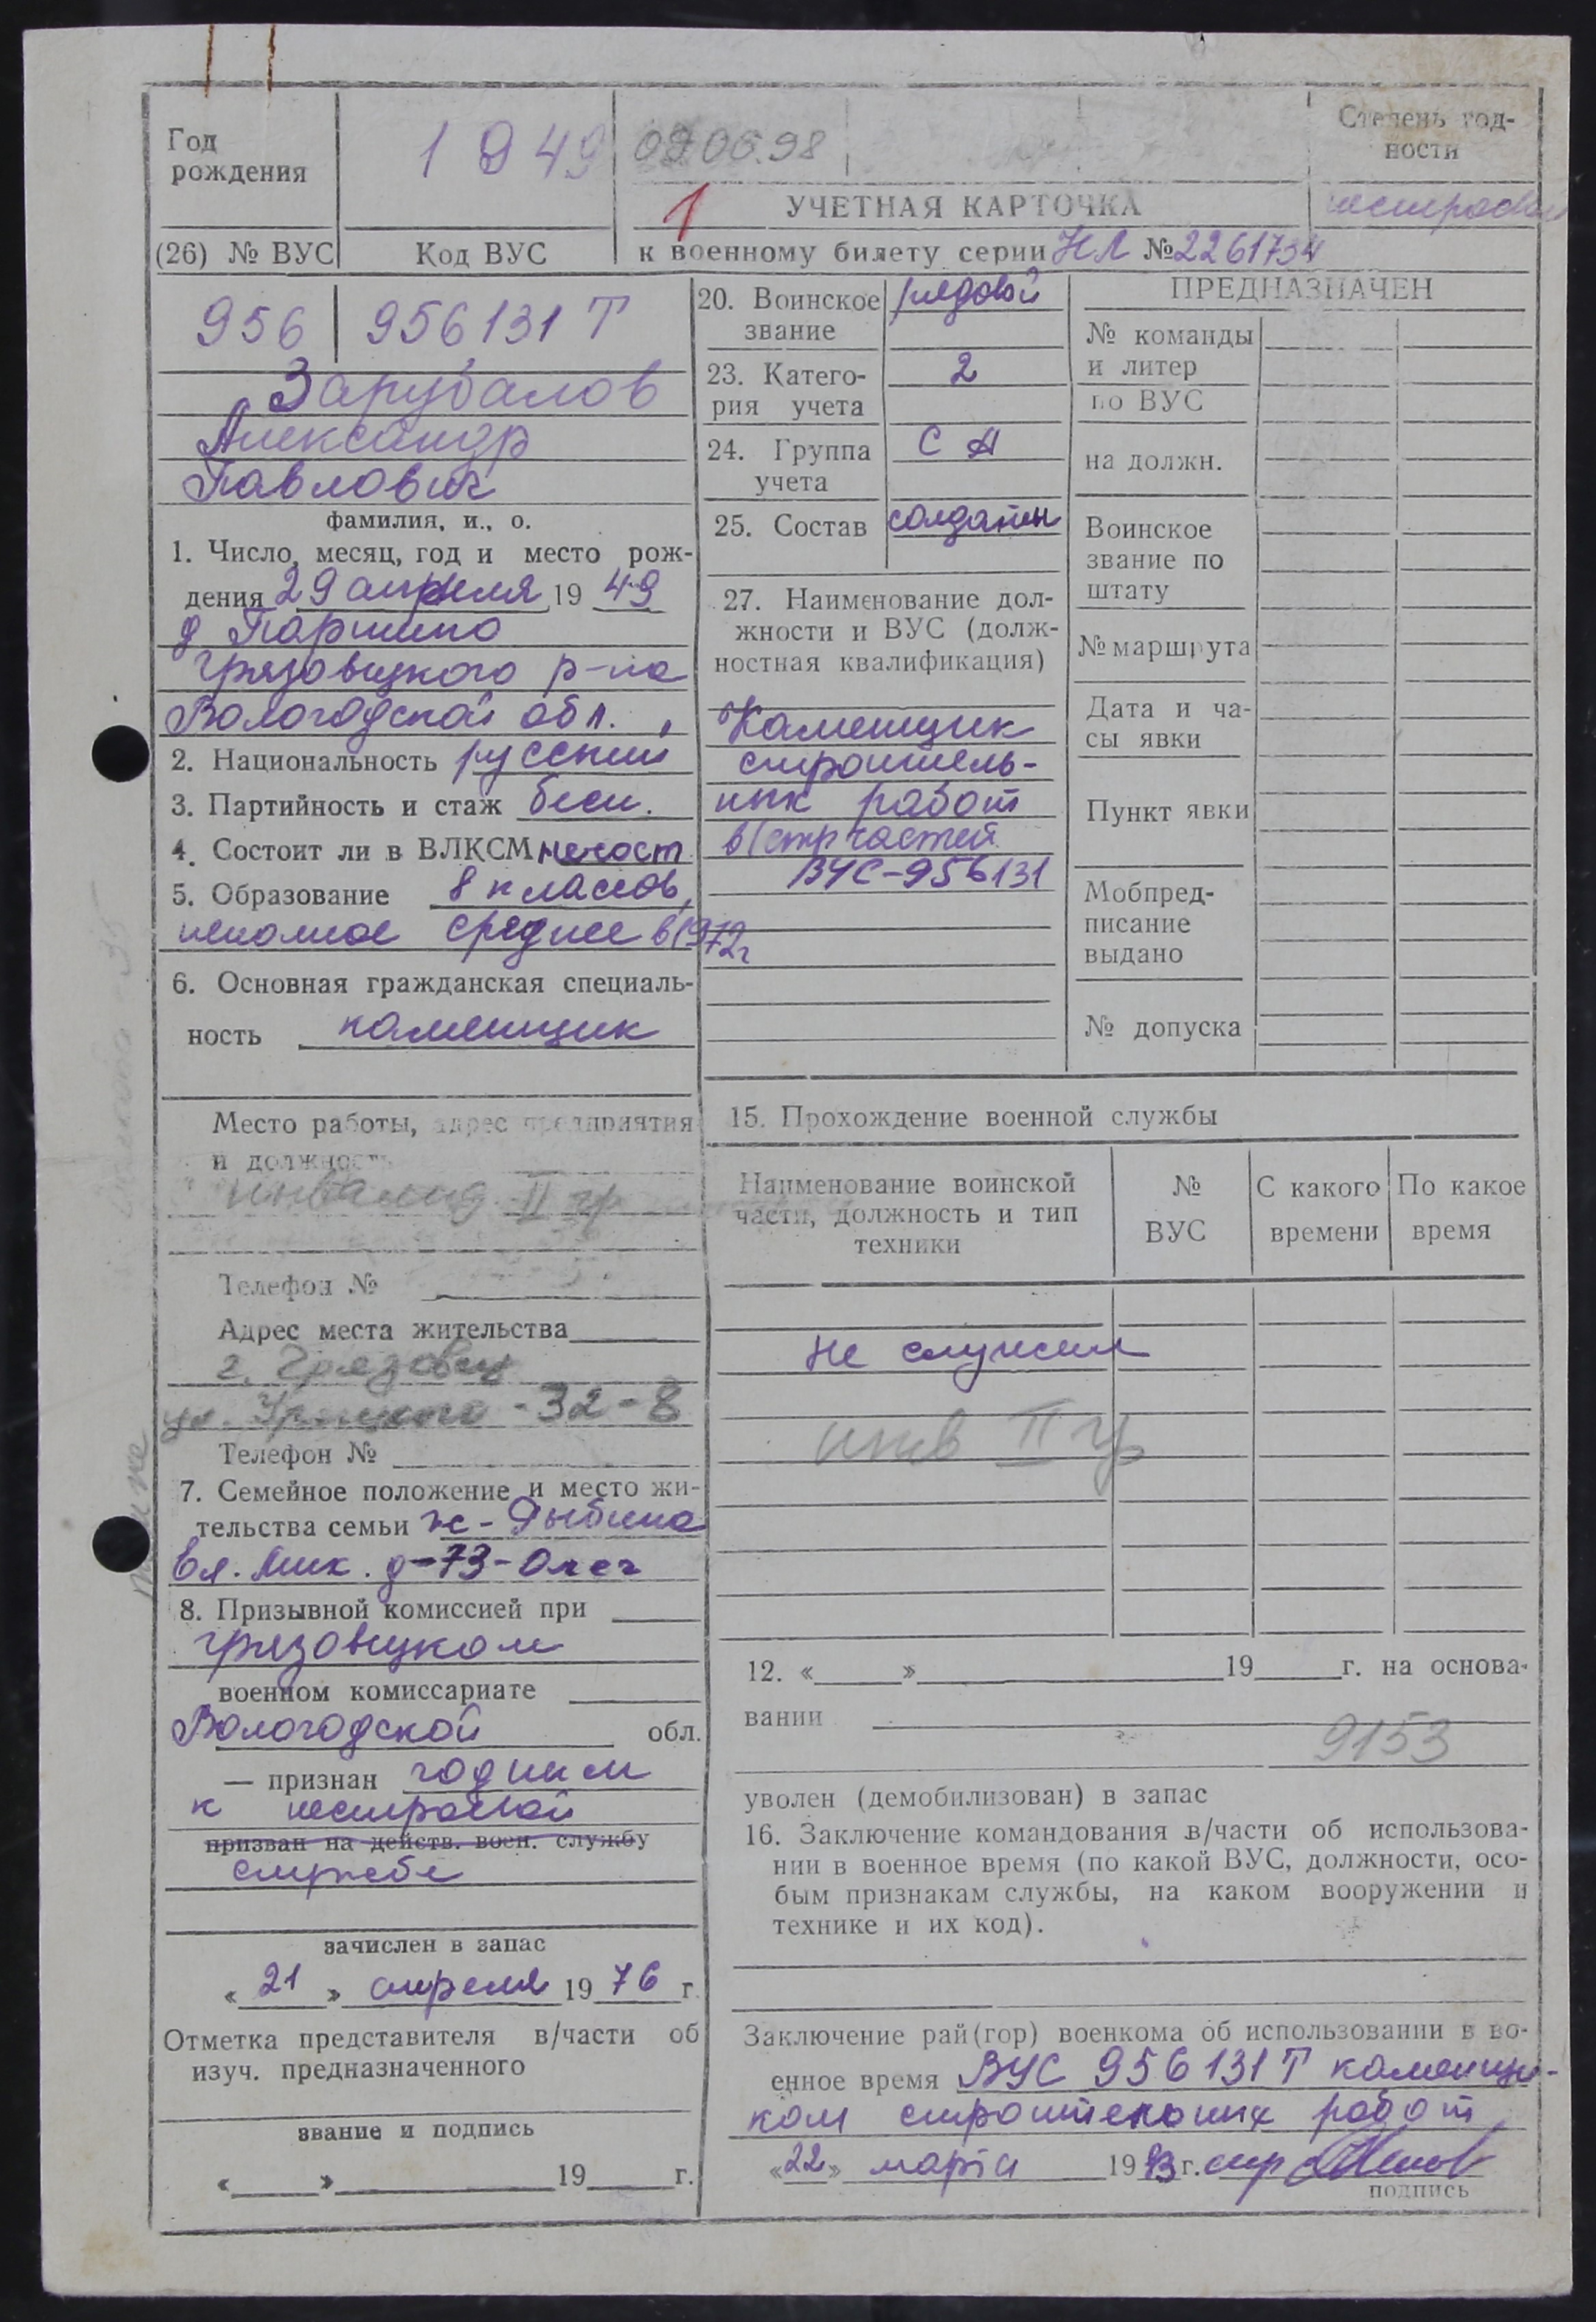 Год
рождения
1949
09.06.98
Степень год-
ности
1
УЧЕТНАЯ КАРТОЧКА
(26) № ВУС
Код ВУС
к военному билету серии НЛ № 2261734
956
956131 Т
Зарубалов
Александр
Павлович
фамилия, и., о.
1. Число, месяц, год и место рож-
дения 29 апреля 19 49
д Паршино
Грязовецкого р-на
Вологодской обл.
2. Национальность русский
3. Партийность и стаж
4. Состоит ли в ВЛКСМ несост
5. Образование 8 классов,
неполное среднее в 1972г
6. Основная гражданская специаль-
ность каменщик
Место работы, адрес предприятия
и должность
инвалид II гр
Телефон №
Адрес места жительства
г. Грязовец
ул. Урицкого - 32 - 8
Телефон №
7. Семейное положение и место жи-
тельства семьи ж -
8. Призывной комиссией при
Грязовецком
военном комиссариате
Вологодской обл.
— признан годным
к нестроевой
призван на действ. воен. службу
службе
зачислен в запас
« 21 » апреля 19 76 г.
Отметка представителя в/части об
изуч. предназначенного
звание и подпись
« » 19 г.
20. Воинское
звание
рядовой
23. Катего-
рия учета
2
24. Группа
учета
СА
25. Состав
солдаты
27. Наименование дол-
жности и ВУС (долж-
ностная квалификация)
Каменщик
строитель-
ных работ
в/стр частей
ВУС-956131
ПРЕДНАЗНАЧЕН
№ команды
и литер
по ВУС
на должн.
Воинское
звание по
штату
№ маршрута
Дата и ча-
сы явки
Пункт явки
Мобпред-
писание
выдано
№ допуска
15. Прохождение военной службы
Наименование воинской
части, должность и тип
техники
№
ВУС
С какого
времени
По какое
время
не служил
инв II гр
12. « » 19 г. на основа-
вании
9153
уволен (демобилизован) в запас
16. Заключение командования в/части об использова-
нии в военное время (по какой ВУС, должности, осо-
бым признакам службы, на каком вооружении и
технике и их код).
Заключение рай(гор) военкома об использовании в во-
енное время ВУС 956131Т каменщи-
ком строительных работ
«22» марта 19 г.
подпись